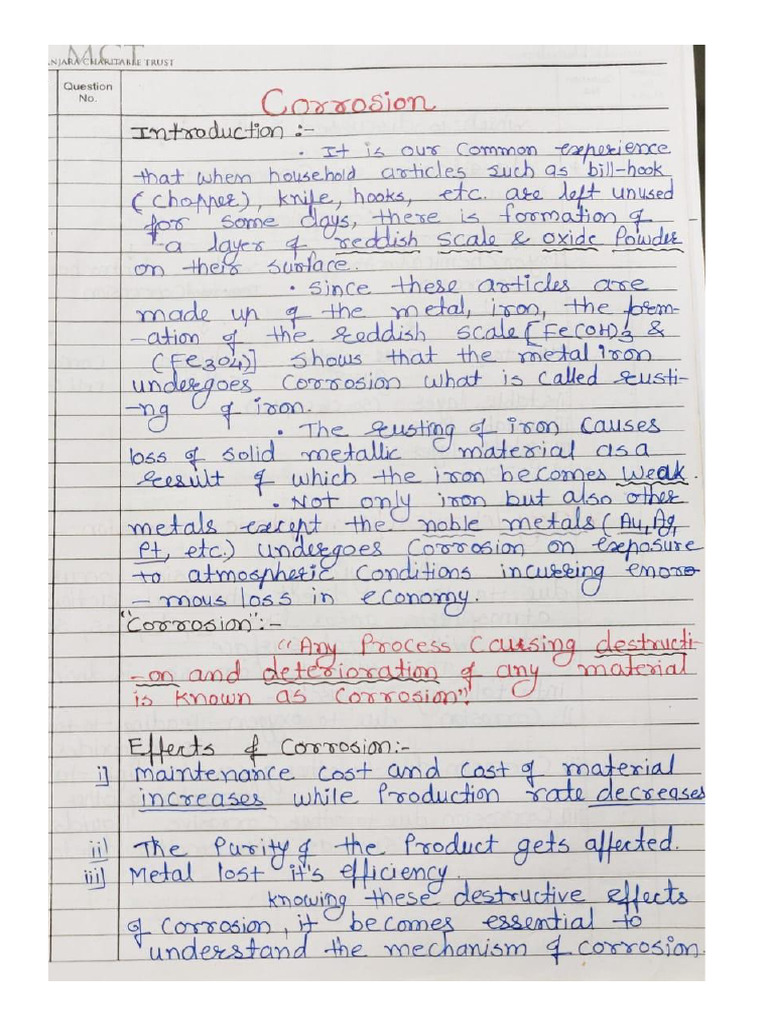 MCT
NJARA CHARITABLE TRUST
Question
No.
Corrosion
Introduction :-
. It is our common experience
that when household articles such as bill-hook
(chopper), knife, hooks, etc. are left unused
for some days, there is formation of
a layer of reddish scale & oxide Powder
on their surface.
• Since these articles are
made up of the metal, iron, the form-
-ation of the reddish scale [Fe(OH)3 &
(Fe3O4)] shows that the metal iron
undergoes corrosion what is called rusti-
-ng of iron.
• The rusting of iron causes
loss of solid metallic material as a
result of which the iron becomes weak.
• Not only iron but also other
metals except the noble metals (Au, Ag,
Pt, etc.) undergoes corrosion on exposure
to atmospheric conditions incurring enoro-
- mous loss in economy.
"Corrosion":-
"Any Process causing destructi-
-on and deterioration of any material
is known as corrosion".
Effects of corrosion:-
i] Maintenance cost and cost of material
increases while Production rate decreases
ii] The Purity of the Product gets affected.
iii] Metal lost it's efficiency.
knowing these destructive effects
of corrosion, it becomes essential to
understand the mechanism of corrosion.